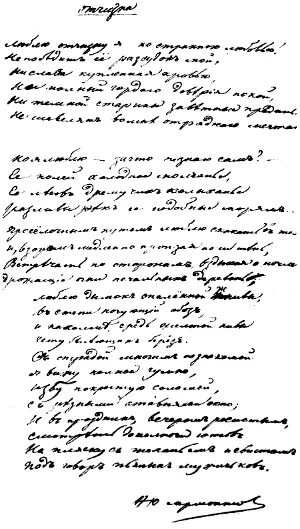 отчизна
Люблю отчизну я но странною любовью!
Не победит её рассудок мой,
Ни слава купленная кровью,
Ни полный гордого доверия покой,
Ни темной старины заветные преданья
Не шевелят во мне отрадного мечтанья
Но я люблю — за что не знаю сам? —
Ее полей холодное молчанье,
Ее лесов дремучих колыханье
Разливы рек ее подобные морям
Проселочным путем люблю скакать в телеге
И, взором медленно пронзая ночи тень,
Встречать по сторонам, вздыхая о ночлеге
Дрожащие огни печальных деревень
Люблю дымок спаленной жнивы,
В степи ночующий обоз,
И на холме средь желтой нивы
Чету белеющих берез.
С отрадой многим незнакомой
Я вижу полное гумно,
Избу покрытую соломой,
С резными ставнями окно;
И в праздник вечером росистым,
Смотреть до полночи готов
На пляску с топаньем и свистом
Под говор пьяных мужичков.
М Ю Лермонтов